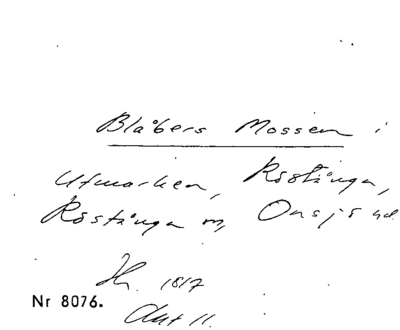 Blåbers Mossen i
Utmarken, Röstånga,
Röstånga sn, Onsjö hd.
H. 1817
Nr 8076.
Akt 11.